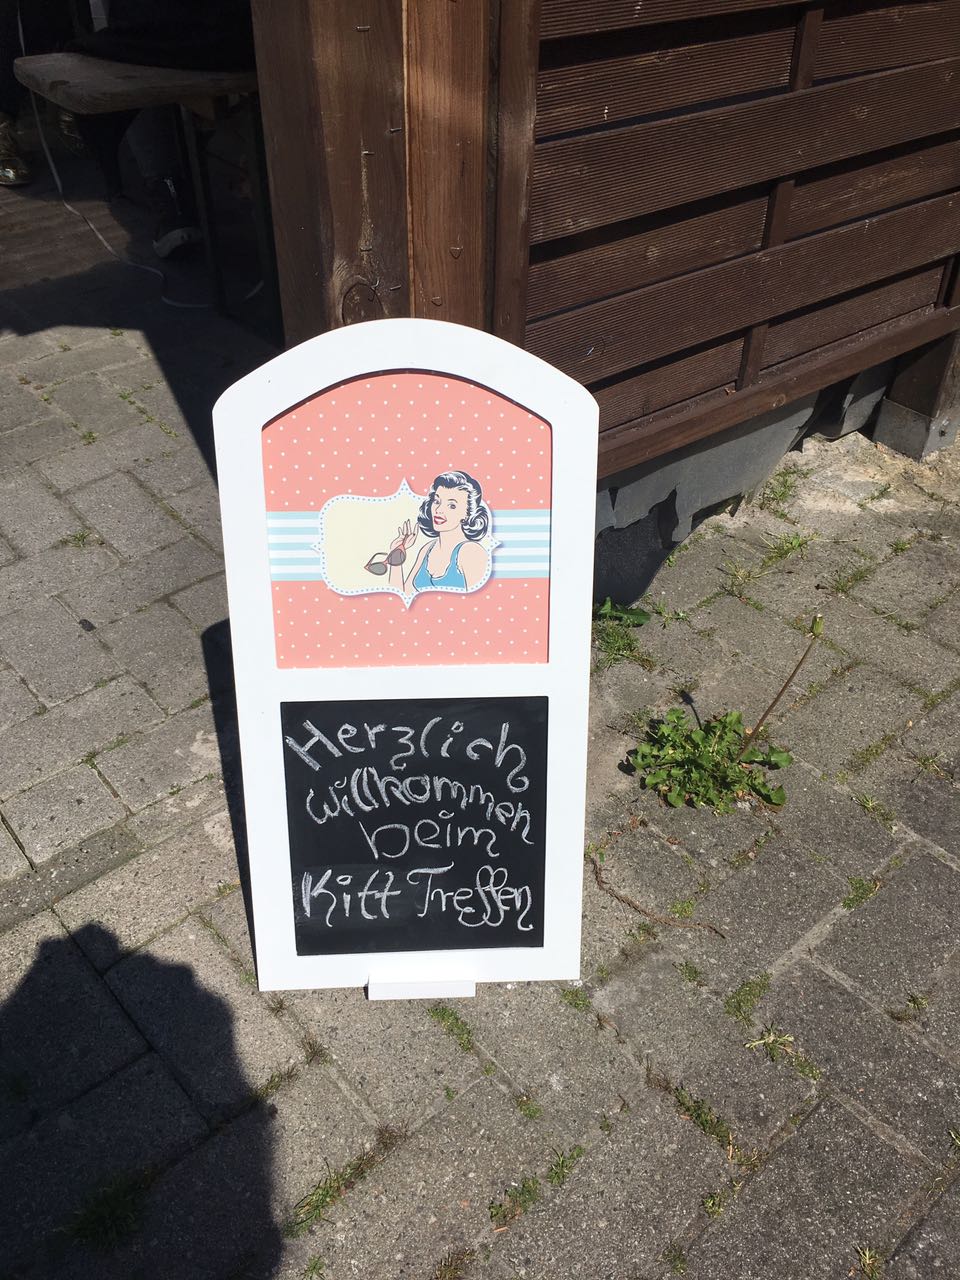 Herzlich
willkommen
beim
Kitt Treffen